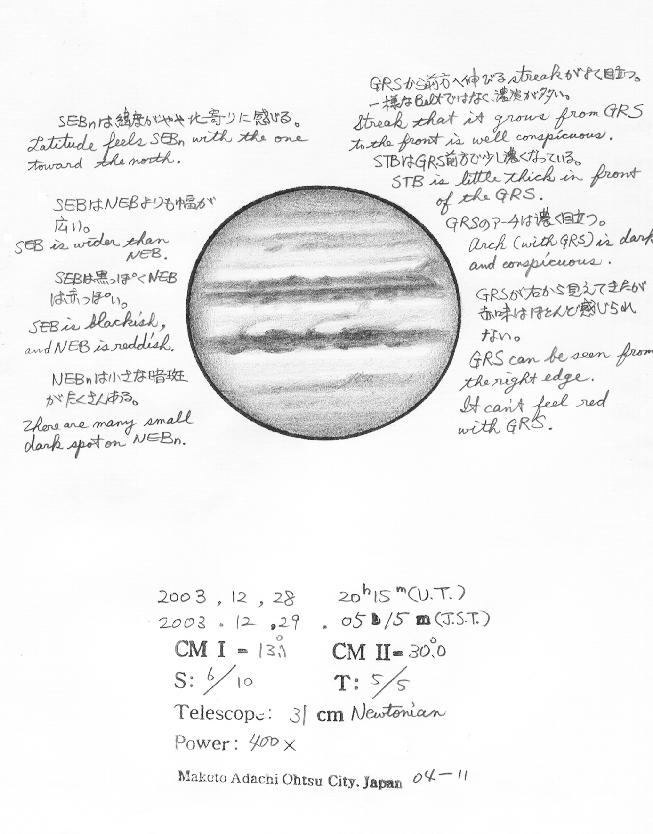 SEBnは緯度がやや北寄りに感じる。
Latitude feels SEBn with the one
toward the north.
SEBはNEBよりも幅が
広い。
SEB is wider than
NEB.
SEBは黒っぽくNEB
は赤っぽい。
SEB is blackish,
and NEB is reddish.
NEBnは小さな暗斑
がたくさんある。
There are many small
dark spot on NEBn.
GRSから前方へ伸びるstreakがよく目立つ。
一様なBeltではなく、濃淡が多い。
Streak that it grows from GRS
to the front is well conspicuous.
STBはGRS前方で少し濃くなっている。
STB is little thick in front
of the GRS.
GRSのアーチは濃く目立つ。
Arch (with GRS) is dark
and conspicuous.
GRSが右から見えてきたが
赤味はほとんど感じられ
ない。
GRS can be seen from
the right edge.
It can't feel red
with GRS.
2003 , 12 , 28 20h 15m (U.T.)
2003 . 12 , 29 . 05 h 15 m (J.S.T.)
CM I = CM II = 30°.0
S: 6/10 T: 5/5
Telescope: 31 cm Newtonian
Power: 400 x
Makoto Adachi Ohtsu City. Japan 04-11